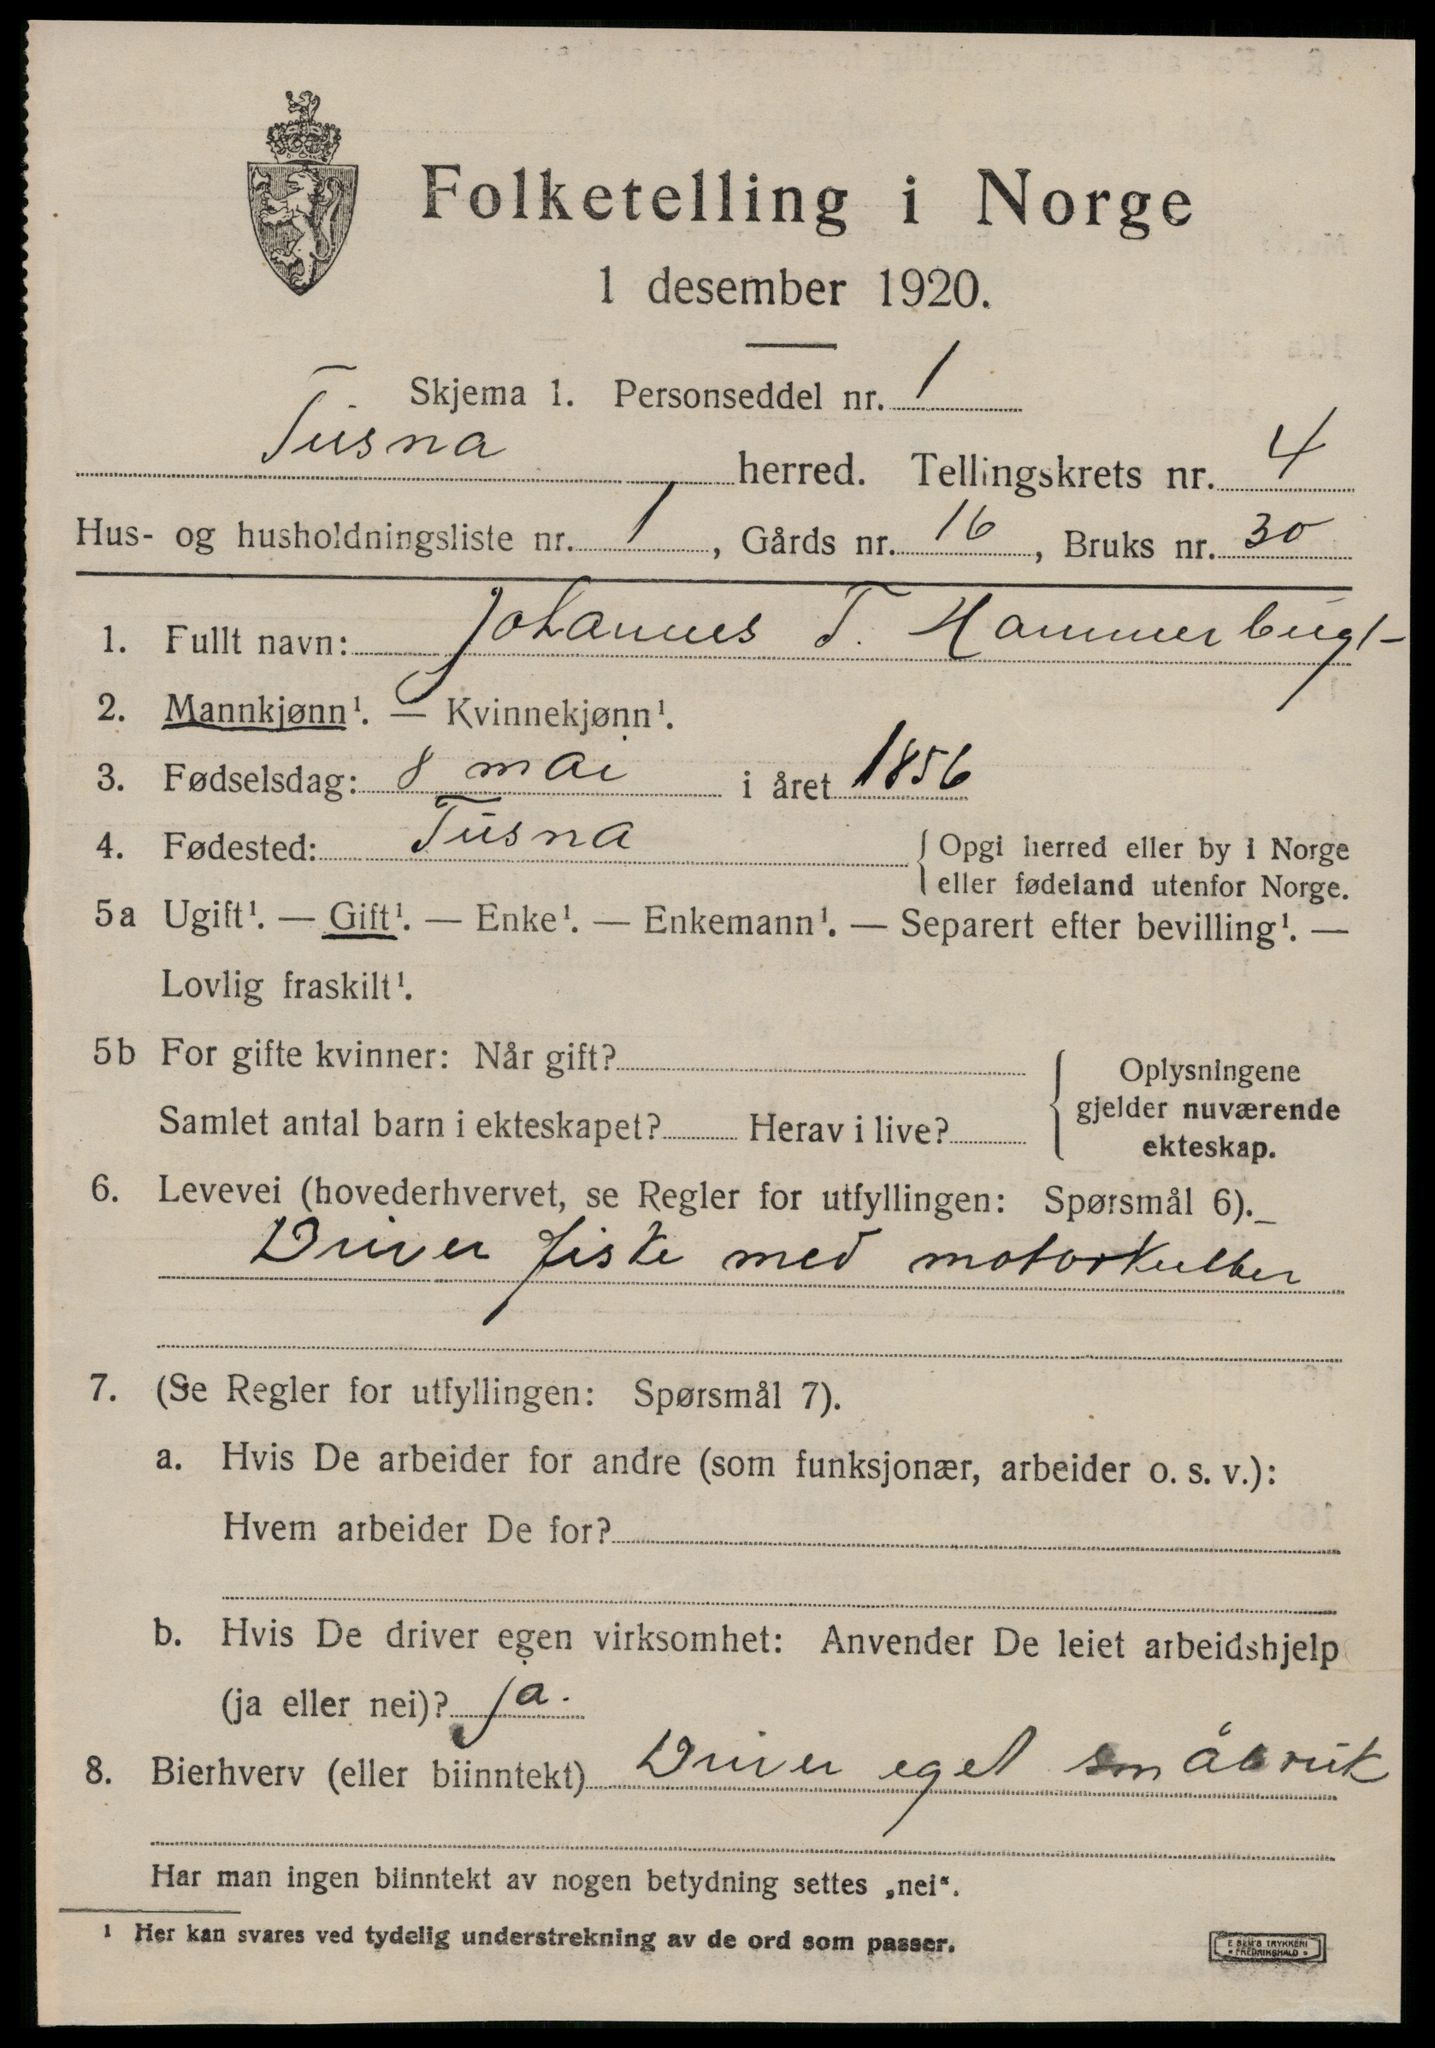 Folketelling i Norge
1 desember 1920.
Skjema 1. Personseddel nr. 1
Tusna herred. Tellingskrets nr. 4
Hus- og husholdningsliste nr. 1, Gårds nr. 16, Bruks nr. 30
1. Fullt navn: Johannes T. Hammerbugt
2. Mannkjønn¹. — Kvinnekjønn¹.
3. Fødselsdag: 8 mai i året 1856
4. Fødested: Tusna { Opgi herred eller by i Norge
eller fødeland utenfor Norge.
5a Ugift¹. — Gift¹. — Enke¹. — Enkemann¹. — Separert efter bevilling¹. —
Lovlig fraskilt¹.
5b For gifte kvinner: Når gift?
Samlet antal barn i ekteskapet? Herav i live?
{ Oplysningene
gjelder nuværende
ekteskap.
6. Levevei (hovederhvervet, se Regler for utfyllingen: Spørsmål 6).
Driver fiske med motorkutter
7. (Se Regler for utfyllingen: Spørsmål 7).
a. Hvis De arbeider for andre (som funksjonær, arbeider o. s. v.):
Hvem arbeider De for?
b. Hvis De driver egen virksomhet: Anvender De leiet arbeidshjelp
(ja eller nei)? ja.
8. Bierhverv (eller biinntekt) Driver eget småbruk
Har man ingen biinntekt av nogen betydning settes „nei“.
¹ Her kan svares ved tydelig understrekning av de ord som passer.
E SEM'S TRYKKERI
FREDRIKSHALD